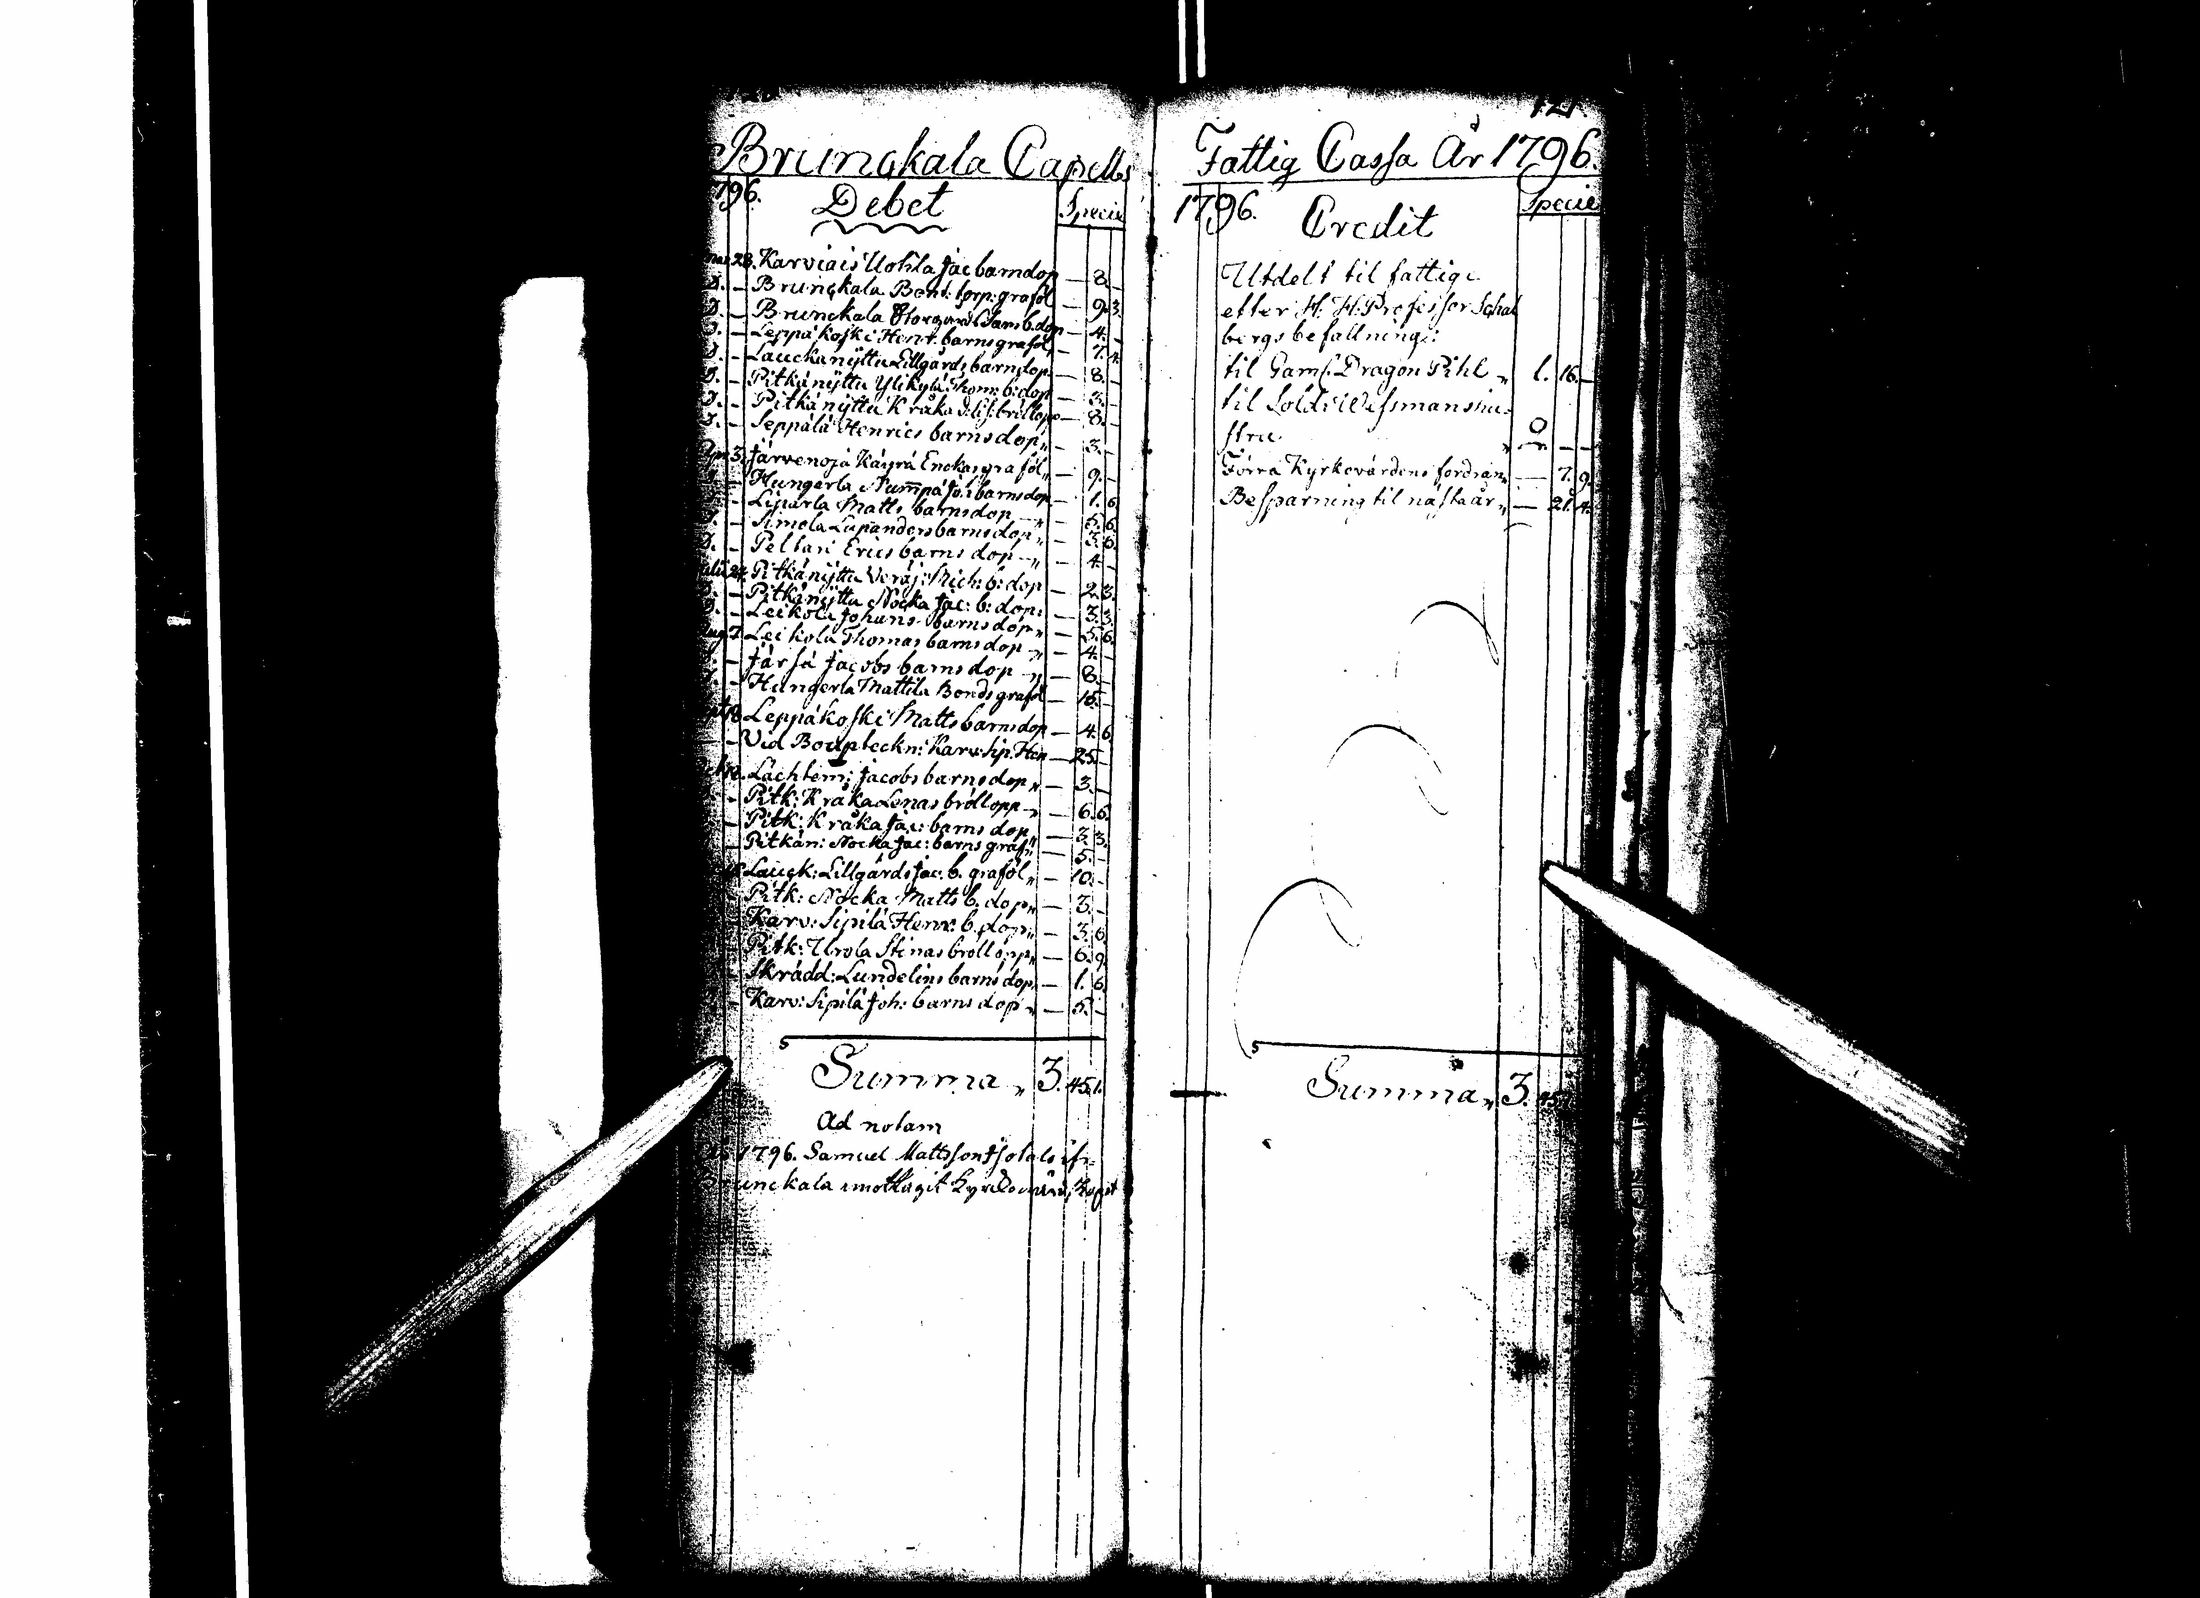 Brunckala Capells
1796.
Debet
Specie
28. Karviais Uotila Jac barndop — 8. —
D. — Brunckala Bent: torp: graföl — 9. 3.
D. — Brunckala Storgårds Sam b. dop — 4. —
D. — Leppäkoski Henr. barns graföl — 7. 4.
D. — Lauckanÿttu Lillgårds barnsdop — 8. —
D. — Pitkänÿttu Ylikylä Thom: b: dop — 3. —
D. — Pitkänÿttu Kråka bröllopp — 8. —
D. — Seppälä Henrics barnsdop „ — 3. —
3. Järvenoja Käyrä Enckas graföl „ — 9. —
— Hungerla Numpä Joh: barnsdop — 1. 6.
— Liparla Matts barnsdop — „ — 5. 6.
— Simola Lapanders barnsdop „ — 3. 6.
D. — Peltari Erics barns dop — „ — 4. —
Julii 24. Pitkänÿttu Veräj: Mich: b: dop — 2. 3.
D. — Pitkänÿttu Nocka Jac: b: dop: — 3. 3.
D. — Leikola Johans barnsdop „ — 5. 6.
7. Leikola Thomas barnsdop „ — 4. —
— Järsä Jacobs barnsdop „ — 8. —
— Hungerla Mattila Bonds graföl — 15. —
18. Leppäkoski Matts barnsdop — 4. 6.
— Vid Boupteckn: Karv: Sip. Hen — 25. —
Lachtem: Jacobs barnsdop „ — 3. —
— Pitk: Kråka Lenas bröllopp „ — 6. 6.
— Pitk: Kråka Jac: barns dop — 3. 3.
— Pitkän: Nocka Jac: barns graf „ — 5. —
Lauck: Lillgårds Jac. b. graföl „ — 10. —
Pitk: Nocka Matts b. dop „ — 3. —
Karv: Sipilä Henr: b. dop „ — 3. 6.
Pitk: Urola Stinas bröllopp „ — 6. 9.
Skrädd: Lundelins barns dop — 1. 6.
Karv: Sipilä Joh: barns dop „ — 5. —
Summa „ 3. 45. 1.
Ad notam
1796. Samuel Mattsson
Brunckala mottagit
121.
Fattig Cassa År 1796.
1796.
Credit
Specie
Utdelt til fattige
efter H. H. Professor Schal
bergs befallning:
til Gaml. Dragon Pihl „ 1. 16. —
til Sold: Wessmans hu-
stru „ — —
Förra Kyrkovärdens fordran „ — 7. 9.
Besparning til nästa år „ — 21. 4.
Summa „ 3. 45. 1.